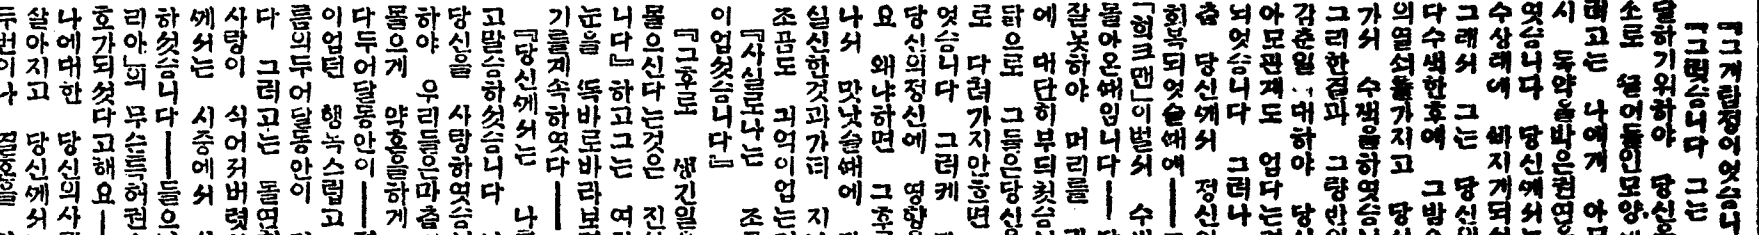 『그게탐정이엇슴니
『그럿슴니다 그는
달하기위하야 당신
소로 들어들인모양
려고는 나에게 아
시 독약을바은권연
엿슴니다 당신께서
수상래에 빠지게되
그래서 그는 당신
다수색한후에 그밤
의열쇠를가지고 당
가서 수색을하엿슴
그리한결과 그량인
감춘일 대하야 당
아모관계도 업다는
뇌엇슴니다 그러나
츰 당신께서 정신
회복되엿슬때에――
「희크맨」이벌서 수
몰아온때임니다――
잘못하야 머리를
에 대단히부듸첫슴
닭으로 그들은당신
로 다려가지안흐면
엇슴니다 그러케
당신의정신에 영향
요 왜냐하면 그후
나서 맛낫슬때에
실신한것과가티 지
조곰도 긔억이업는
『사실로나는 조
이업섯슴니다』
『그후도 생긴일
물으신다는것은 진
니다』하고그는 여
눈을 똑바로바라보
기를계속하엿다――
『당신께서는 나
고말슴하섯슴니다
당신을 사랑하엿슴
하야 우리들은마츰
물으게 약혼을하게
다두어달동안이――
이업던 행녹스럽고
름의두어달동안이
다 그러고는 돌연
사랑이 식어저버렷
께서는 시중에서
하섯슴니다――들으
리아」의 무슨특허권
호가되섯다고해요――
나에대한 당신의사
살아지고 당신께서
두번이나 결혼을